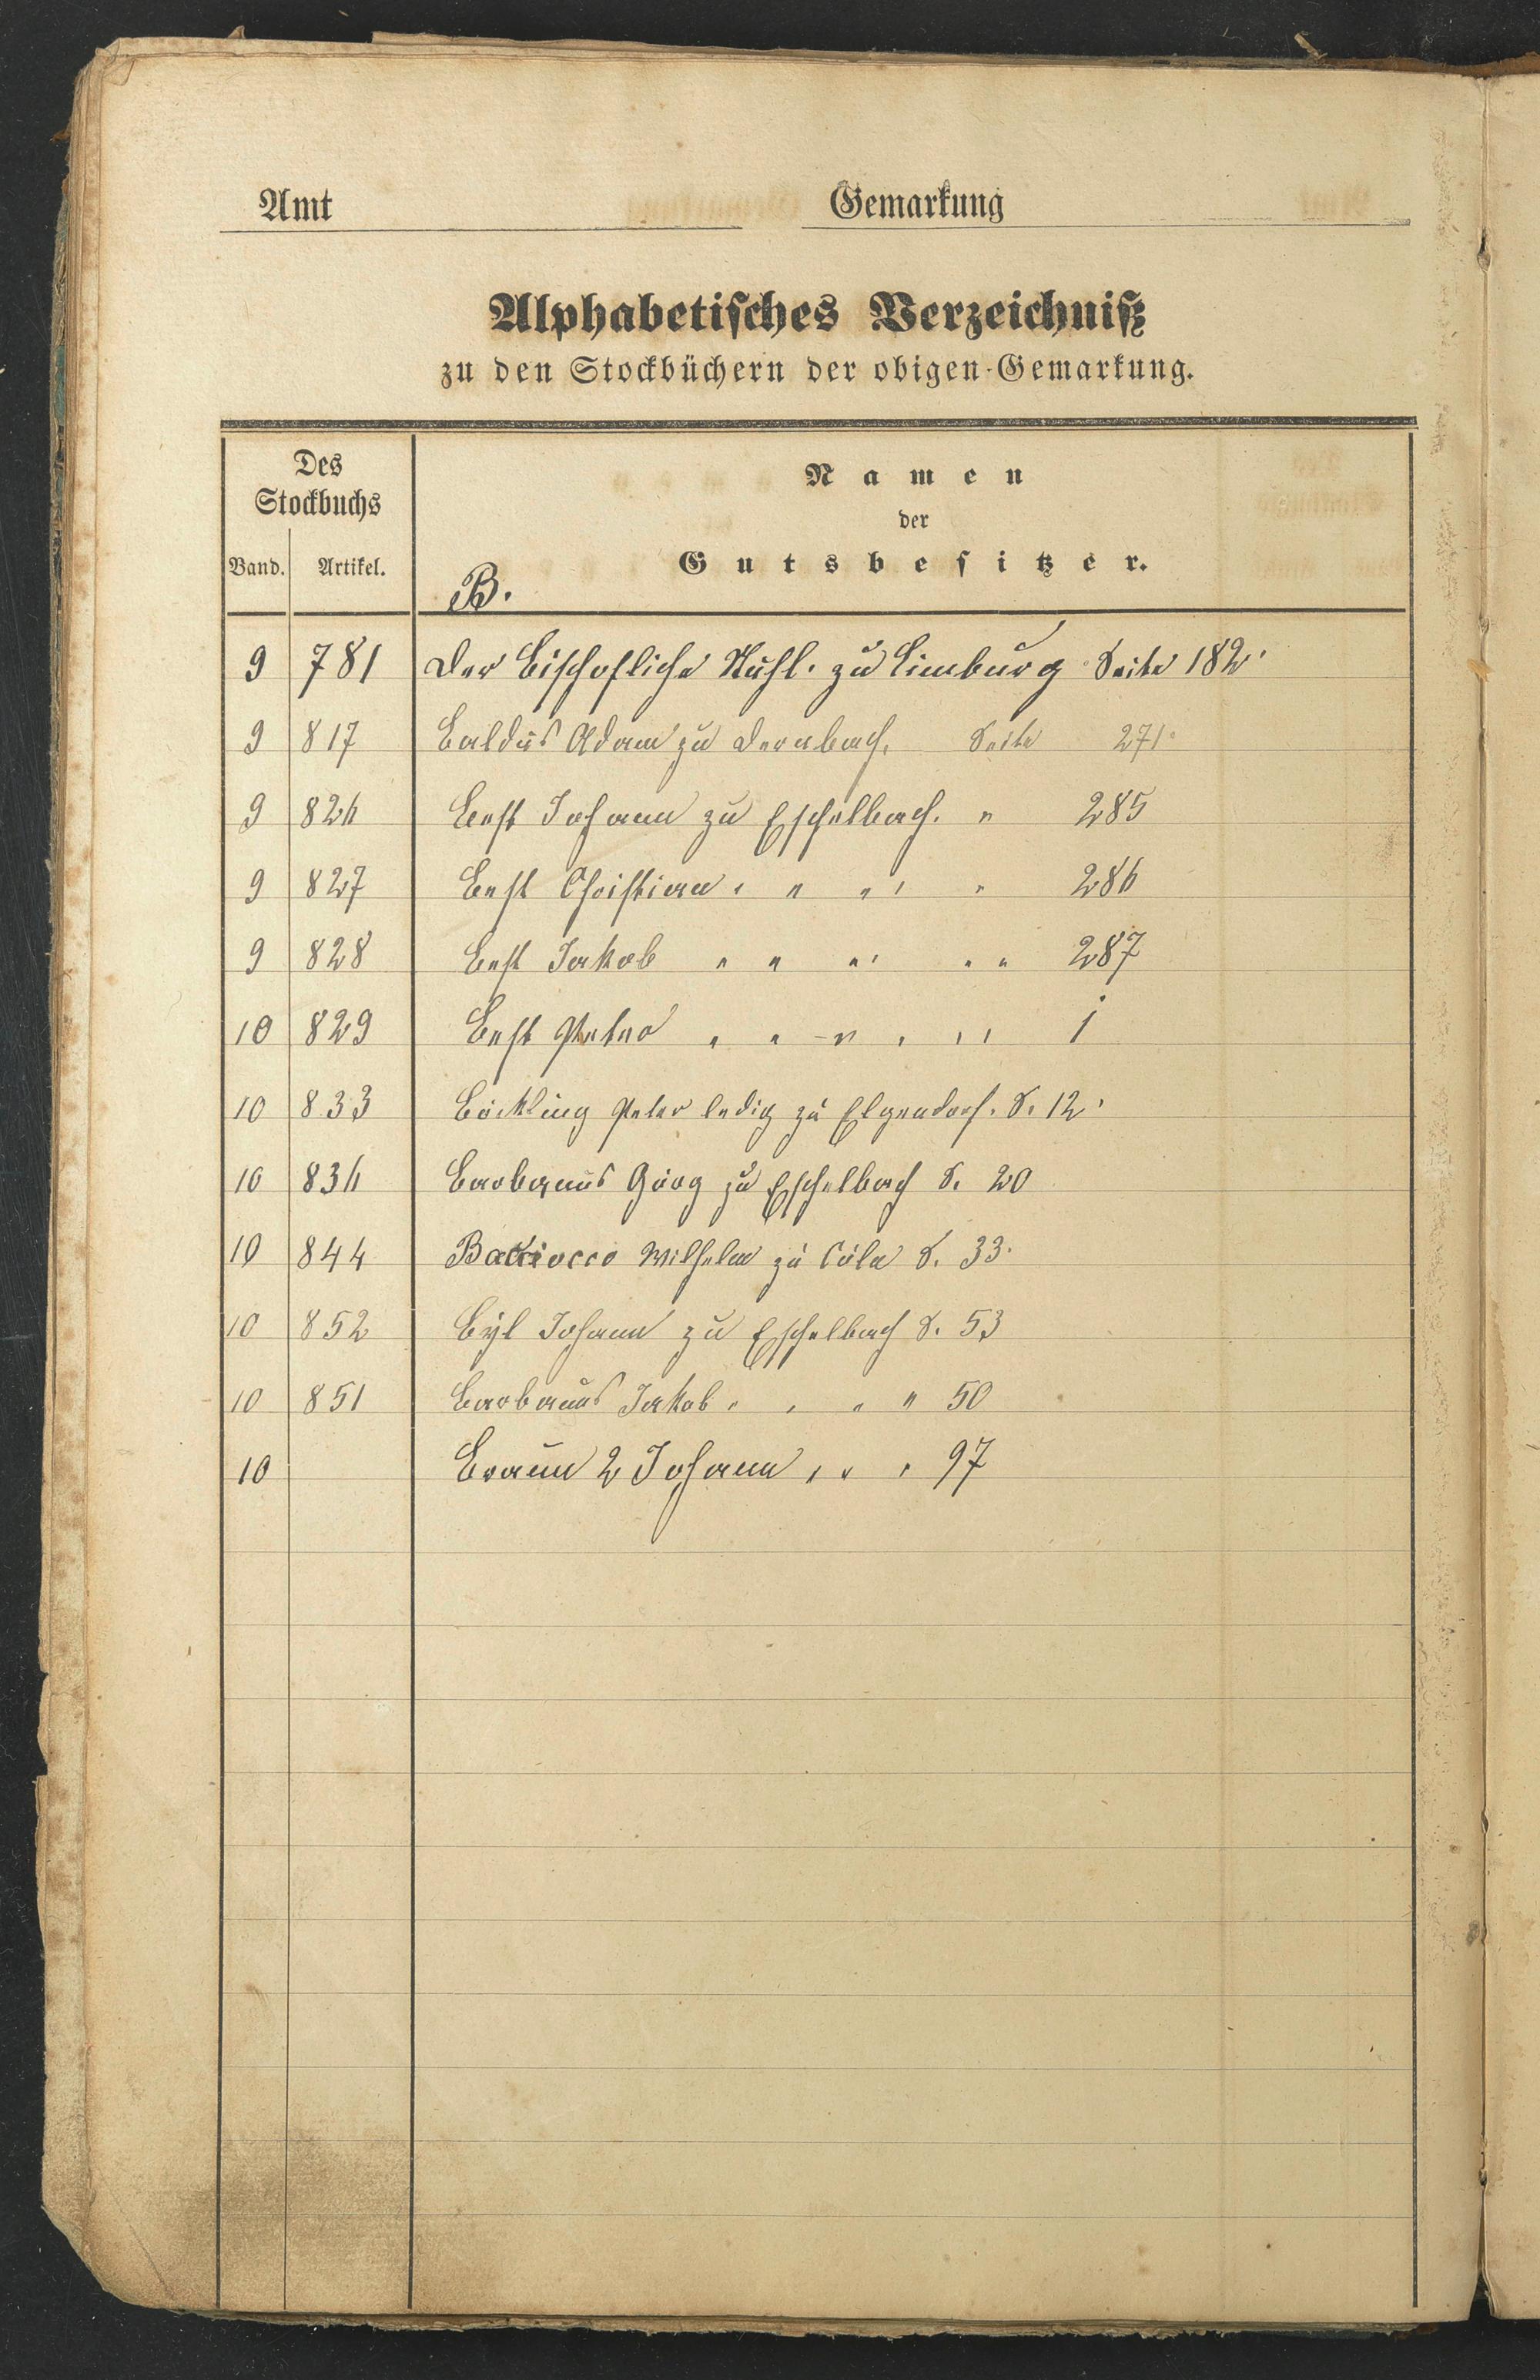 Amt Gemarkung
Alphabetisches Verzeichniß
zu den Stockbüchern der obigen Gemarkung.
Des Stockbuchs
Namen
der
Gutsbesitzer.
Band. Artikel.
B.
9 781 Der Bischofliche Stuhl. zu Limburg Seite 182.
9 817 Baldus Adam zu Dernbach. Seite 271.
9 826 Best Johann zu Eschelbach. " 285
9 827 Best Christian " " " " 286
9 828 Best Jakob " " " " " 287
10 829 Best Peter " " " " " 1
10 833 Böckling Peter ledig zu Elgendorf. S. 12.
10 836 Görg zu Eschelbach S. 20
10 844 Wilhelm zu Cöln S. 33.
10 852 Johann zu Eschelbach S. 53
10 851 Jakob " " " " 50
10 Braun 2 Johann " " " 97